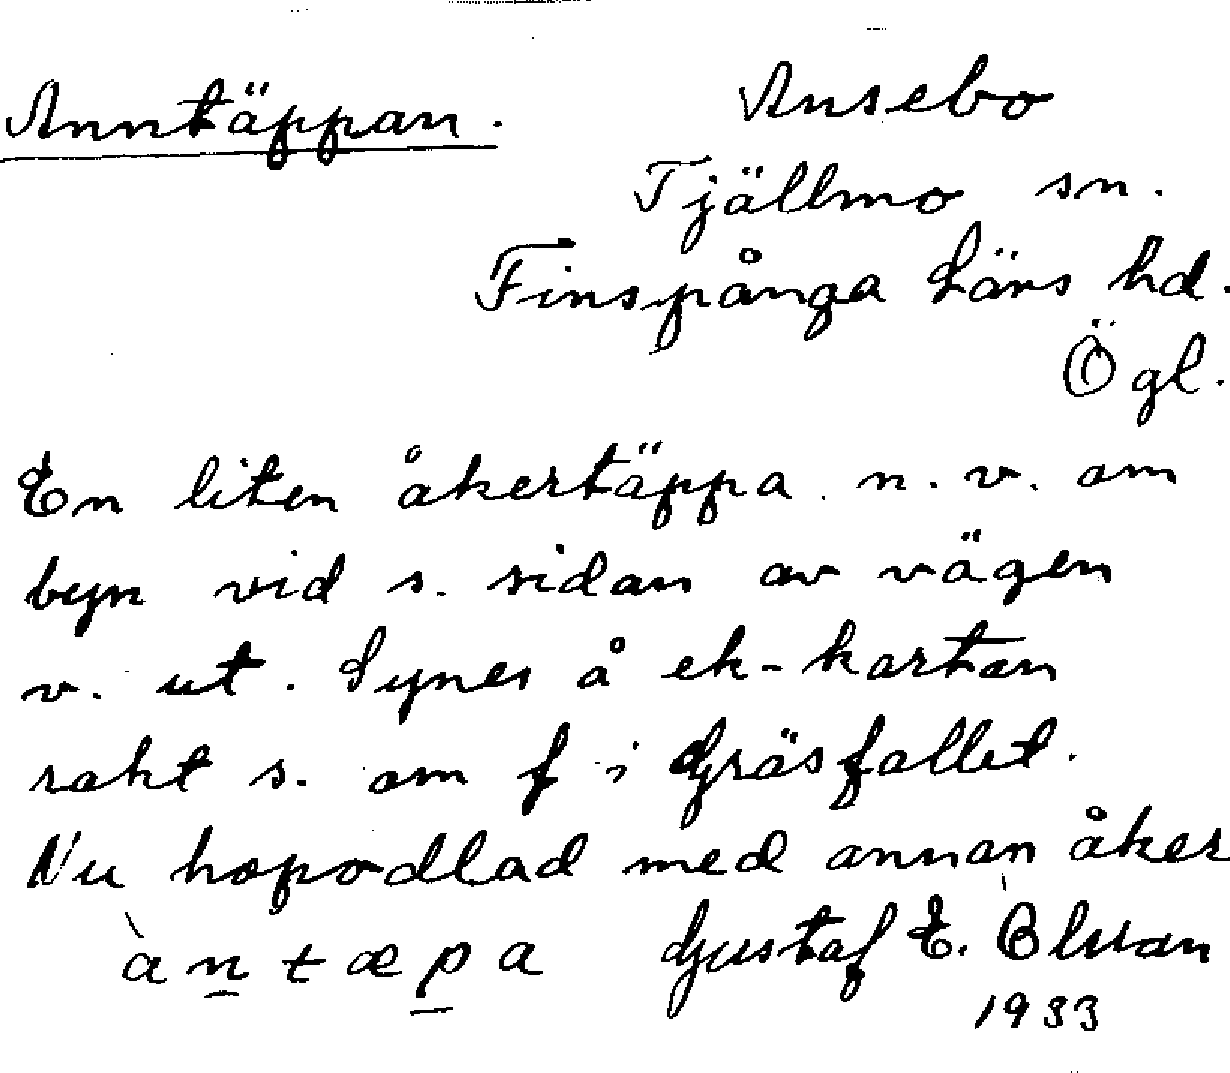 Anntäppan.
Ansebo
Tjällmo sn.
Finspånga läns hd.
Ögl.
En liten åkertäppa n.v. om
byn vid s. sidan av vägen
v. ut. Synes å ek-kartan
rakt s. om f i Gräsfallet.
Nu hopodlad med annan åker
àn̲tæp̲a Gustaf E. Olsson
1933